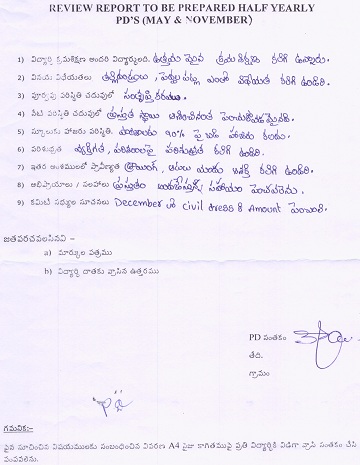 REVIEW REPORT TO BE PREPARED HALF YEARLY
PD'S (MAY & NOVEMBER)
1) విద్యార్థి క్రమశిక్షణ అందరి విద్యార్థులది. ఉత్తమ మైన క్రమశిక్షణ కలిగి ఉన్నారు.
2) వినయ విధేయతలు ఉపాధ్యాయులు, పెద్దల పట్ల ఎంతో విధేయత కలిగి ఉండిరి.
3) పూర్వపు పరిస్థితి చదువులో సంతృప్తికరము.
4) నేటి పరిస్థితి చదువులో ప్రస్తుత స్థాయి
5) స్కూలుకు హాజరు పరిస్థితి. 90% పై హాజరు కలదు.
6) పరిశుభ్రత వ్యక్తిగత, పరిసరాలపై పరిశుభ్రత కలిగి ఉండిరి.
7) ఇతర అంశములలో ప్రావీణ్యత డ్రాయింగ్, ఆటలు యందు ఆసక్తి కలిగి ఉండిరి.
8) అభిప్రాయాలు / సలహాలు ప్రస్తుతం సహాయం పెంచవలెను.
9) కమిటీ సభ్యుల సూచనలు December లో civil dress & Amount పెంచాలి.
జతపరచవలసినవి –
a) మార్కుల పత్రము
b) విద్యార్థి దాతకు వ్రాసిన ఉత్తరము
PD సంతకం
తేది.
గ్రామం
గమనిక:–
పైన సూచించిన విషయములకు సంబంధించిన వివరణ A4 సైజు కాగితముపై ప్రతి విద్యార్థికి విడిగా వ్రాసి సంతకం చేసి
పంపవలెను.